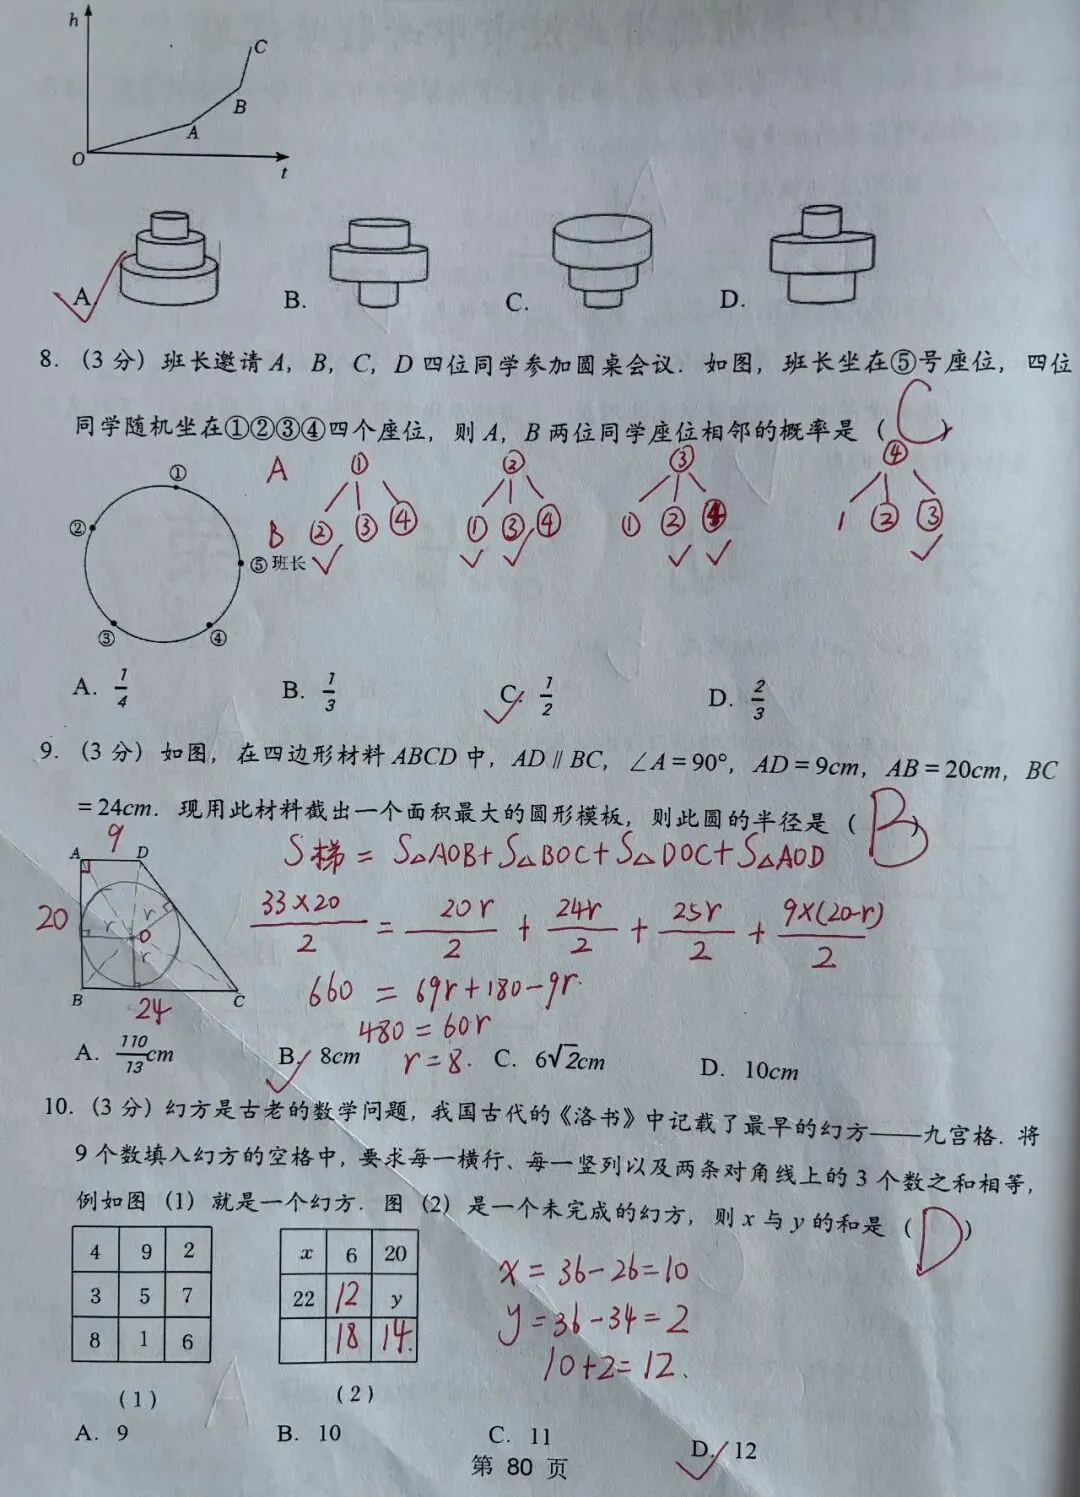 h
C
B
A
O
t
A.
B.
C.
D.
8. （3 分）班长邀请 A，B，C，D 四位同学参加圆桌会议．如图，班长坐在⑤号座位，四位
同学随机坐在①②③④四个座位，则 A，B 两位同学座位相邻的概率是（ C ）
A ① ② ③ ④
B ② ③ ④ ① ③ ④ ① ② ④ 1 ② ③
①
②
⑤班长
③ ④
A. 1/4 B. 1/3 C. 1/2 D. 2/3
9. （3 分）如图，在四边形材料 ABCD 中，AD∥BC，∠A＝90°，AD＝9cm，AB＝20cm，BC
＝24cm．现用此材料截出一个面积最大的圆形模板，则此圆的半径是（ B ）
9
A D
20
r r O r
B C
24
S梯 = S△AOB+S△BOC+S△DOC+S△AOD
33×20/2 = 20r/2 + 24r/2 + 25r/2 + 9×(20-r)/2
660 = 69r+180-9r.
480 = 60r
r=8.
A. 110/13cm B. 8cm C. 6√2cm D. 10cm
10. （3 分）幻方是古老的数学问题，我国古代的《洛书》中记载了最早的幻方——九宫格．将
9 个数填入幻方的空格中，要求每一横行、每一竖列以及两条对角线上的 3 个数之和相等，
例如图（1）就是一个幻方．图（2）是一个未完成的幻方，则 x 与 y 的和是（ D ）
4 9 2
3 5 7
8 1 6
（1）
x 6 20
22 12 y
18 14.
（2）
x = 36-26=10
y=36-34=2
10+2=12.
A. 9 B. 10 C. 11 D. 12
第 80 页